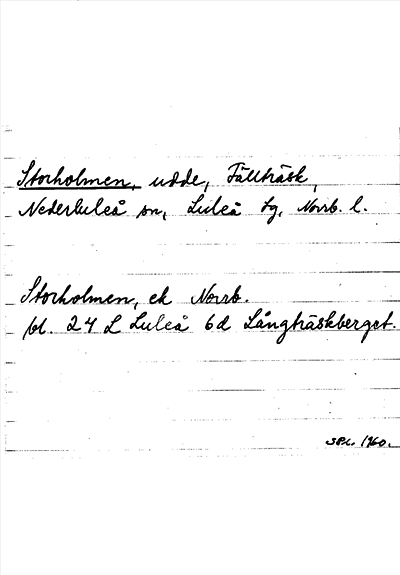 Storholmen, udde, Fällträsk,
Nederluleå sn, Luleå tg, Norrb. l.
Storholmen, ek Norrb.
bl. 24 L Luleå 6d Långträskberget.
1960.